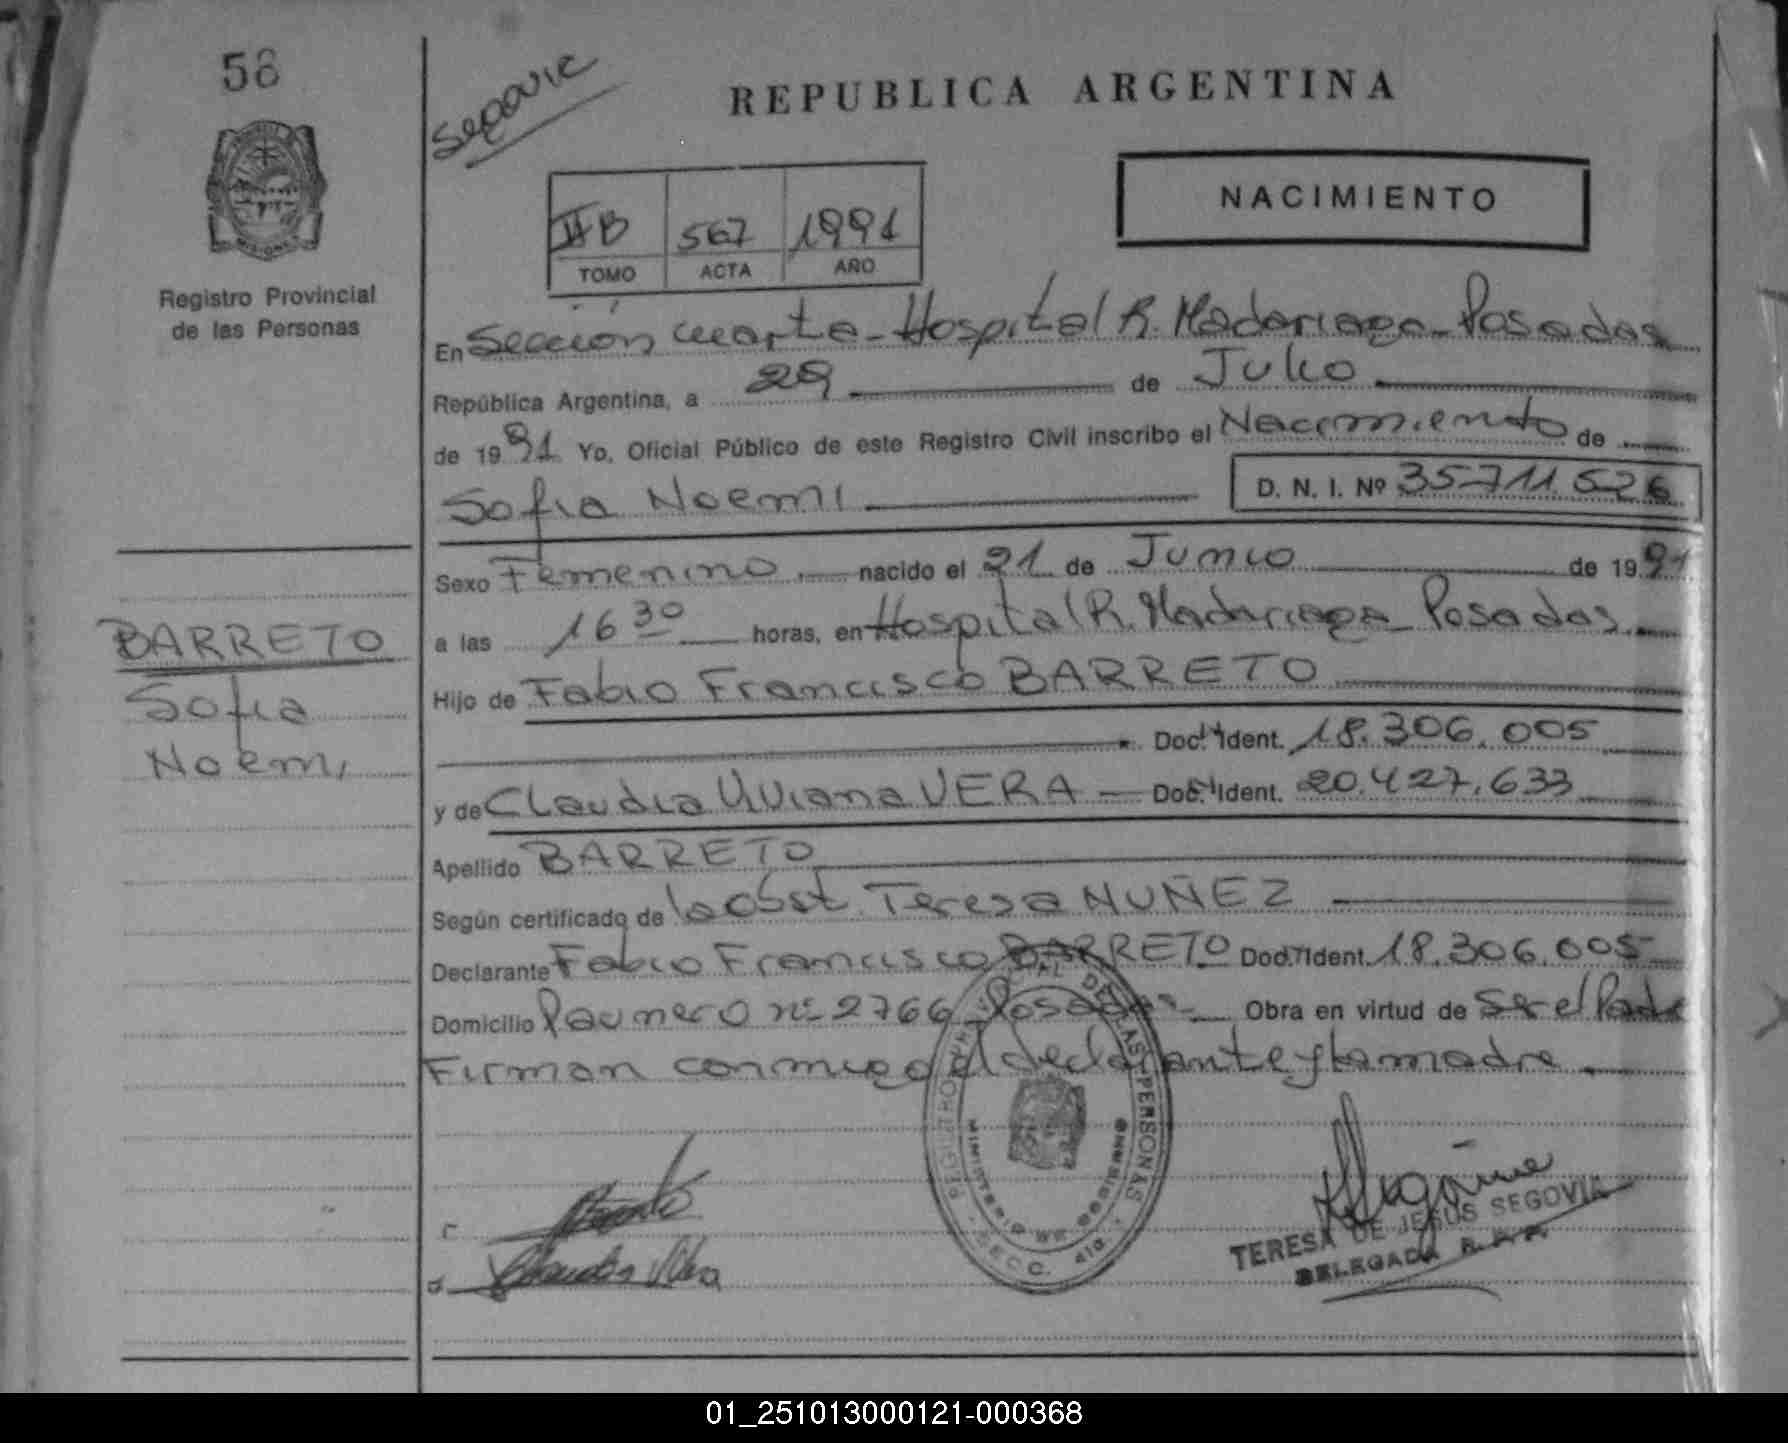 58
Registro Provincial
de las Personas
BARRETO
Sofia
Noemi
REPUBLICA ARGENTINA
NACIMIENTO
II B 567 1991
TOMO ACTA AÑO
En Sección cuarta - Hospital R. Madariaga - Posadas
República Argentina, a 29 de Julio
de 1991 Yo, Oficial Público de este Registro Civil inscribo el Nacimiento de
Sofia Noemi D. N. I. Nº 35.711.526
Sexo Femenino nacido el 21 de Junio de 1991
a las 16 30 horas, en Hospital R. Madariaga - Posadas
Hijo de Fabio Francisco BARRETO
Doc. Ident. 18.306.005
y de Claudia Viviana VERA - Doc. Ident. 20.427.633
Apellido BARRETO
Según certificado de la Obst. Teresa NUÑEZ
Declarante Fabio Francisco BARRETO Doc. Ident. 18.306.005
Domicilio Paunero nº 2766 Posadas - Obra en virtud de Ser el Padre
Firman conmigo el declarante y la madre.
REGISTRO PROVINCIAL DE LAS PERSONAS
MINISTERIO DE GOBIERNO
SECC. 4ta.
TERESA DE JESUS SEGOVIA
DELEGADA R. P. P.
01_251013000121-000368